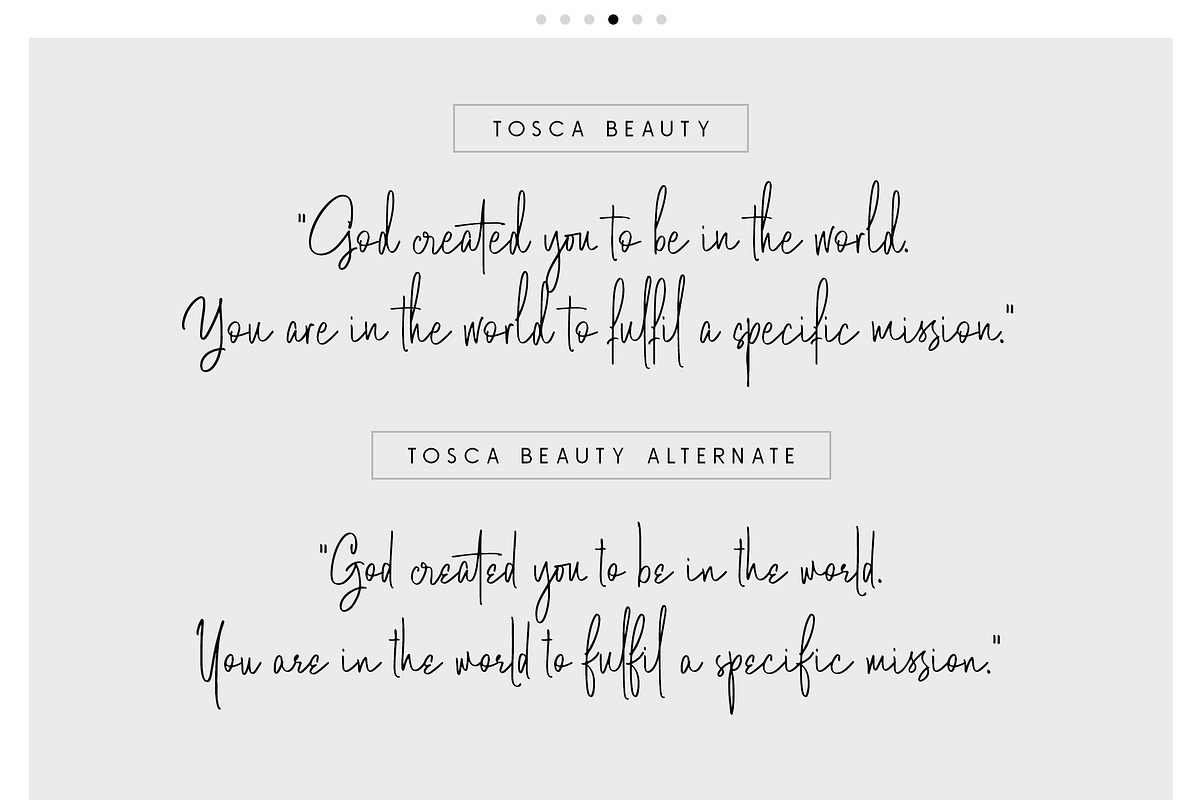 TOSCA BEAUTY
"God created you to be in the world.
You are in the world to fulfil a specific mission."
TOSCA BEAUTY ALTERNATE
"God created you to be in the world.
You are in the world to fulfil a specific mission."